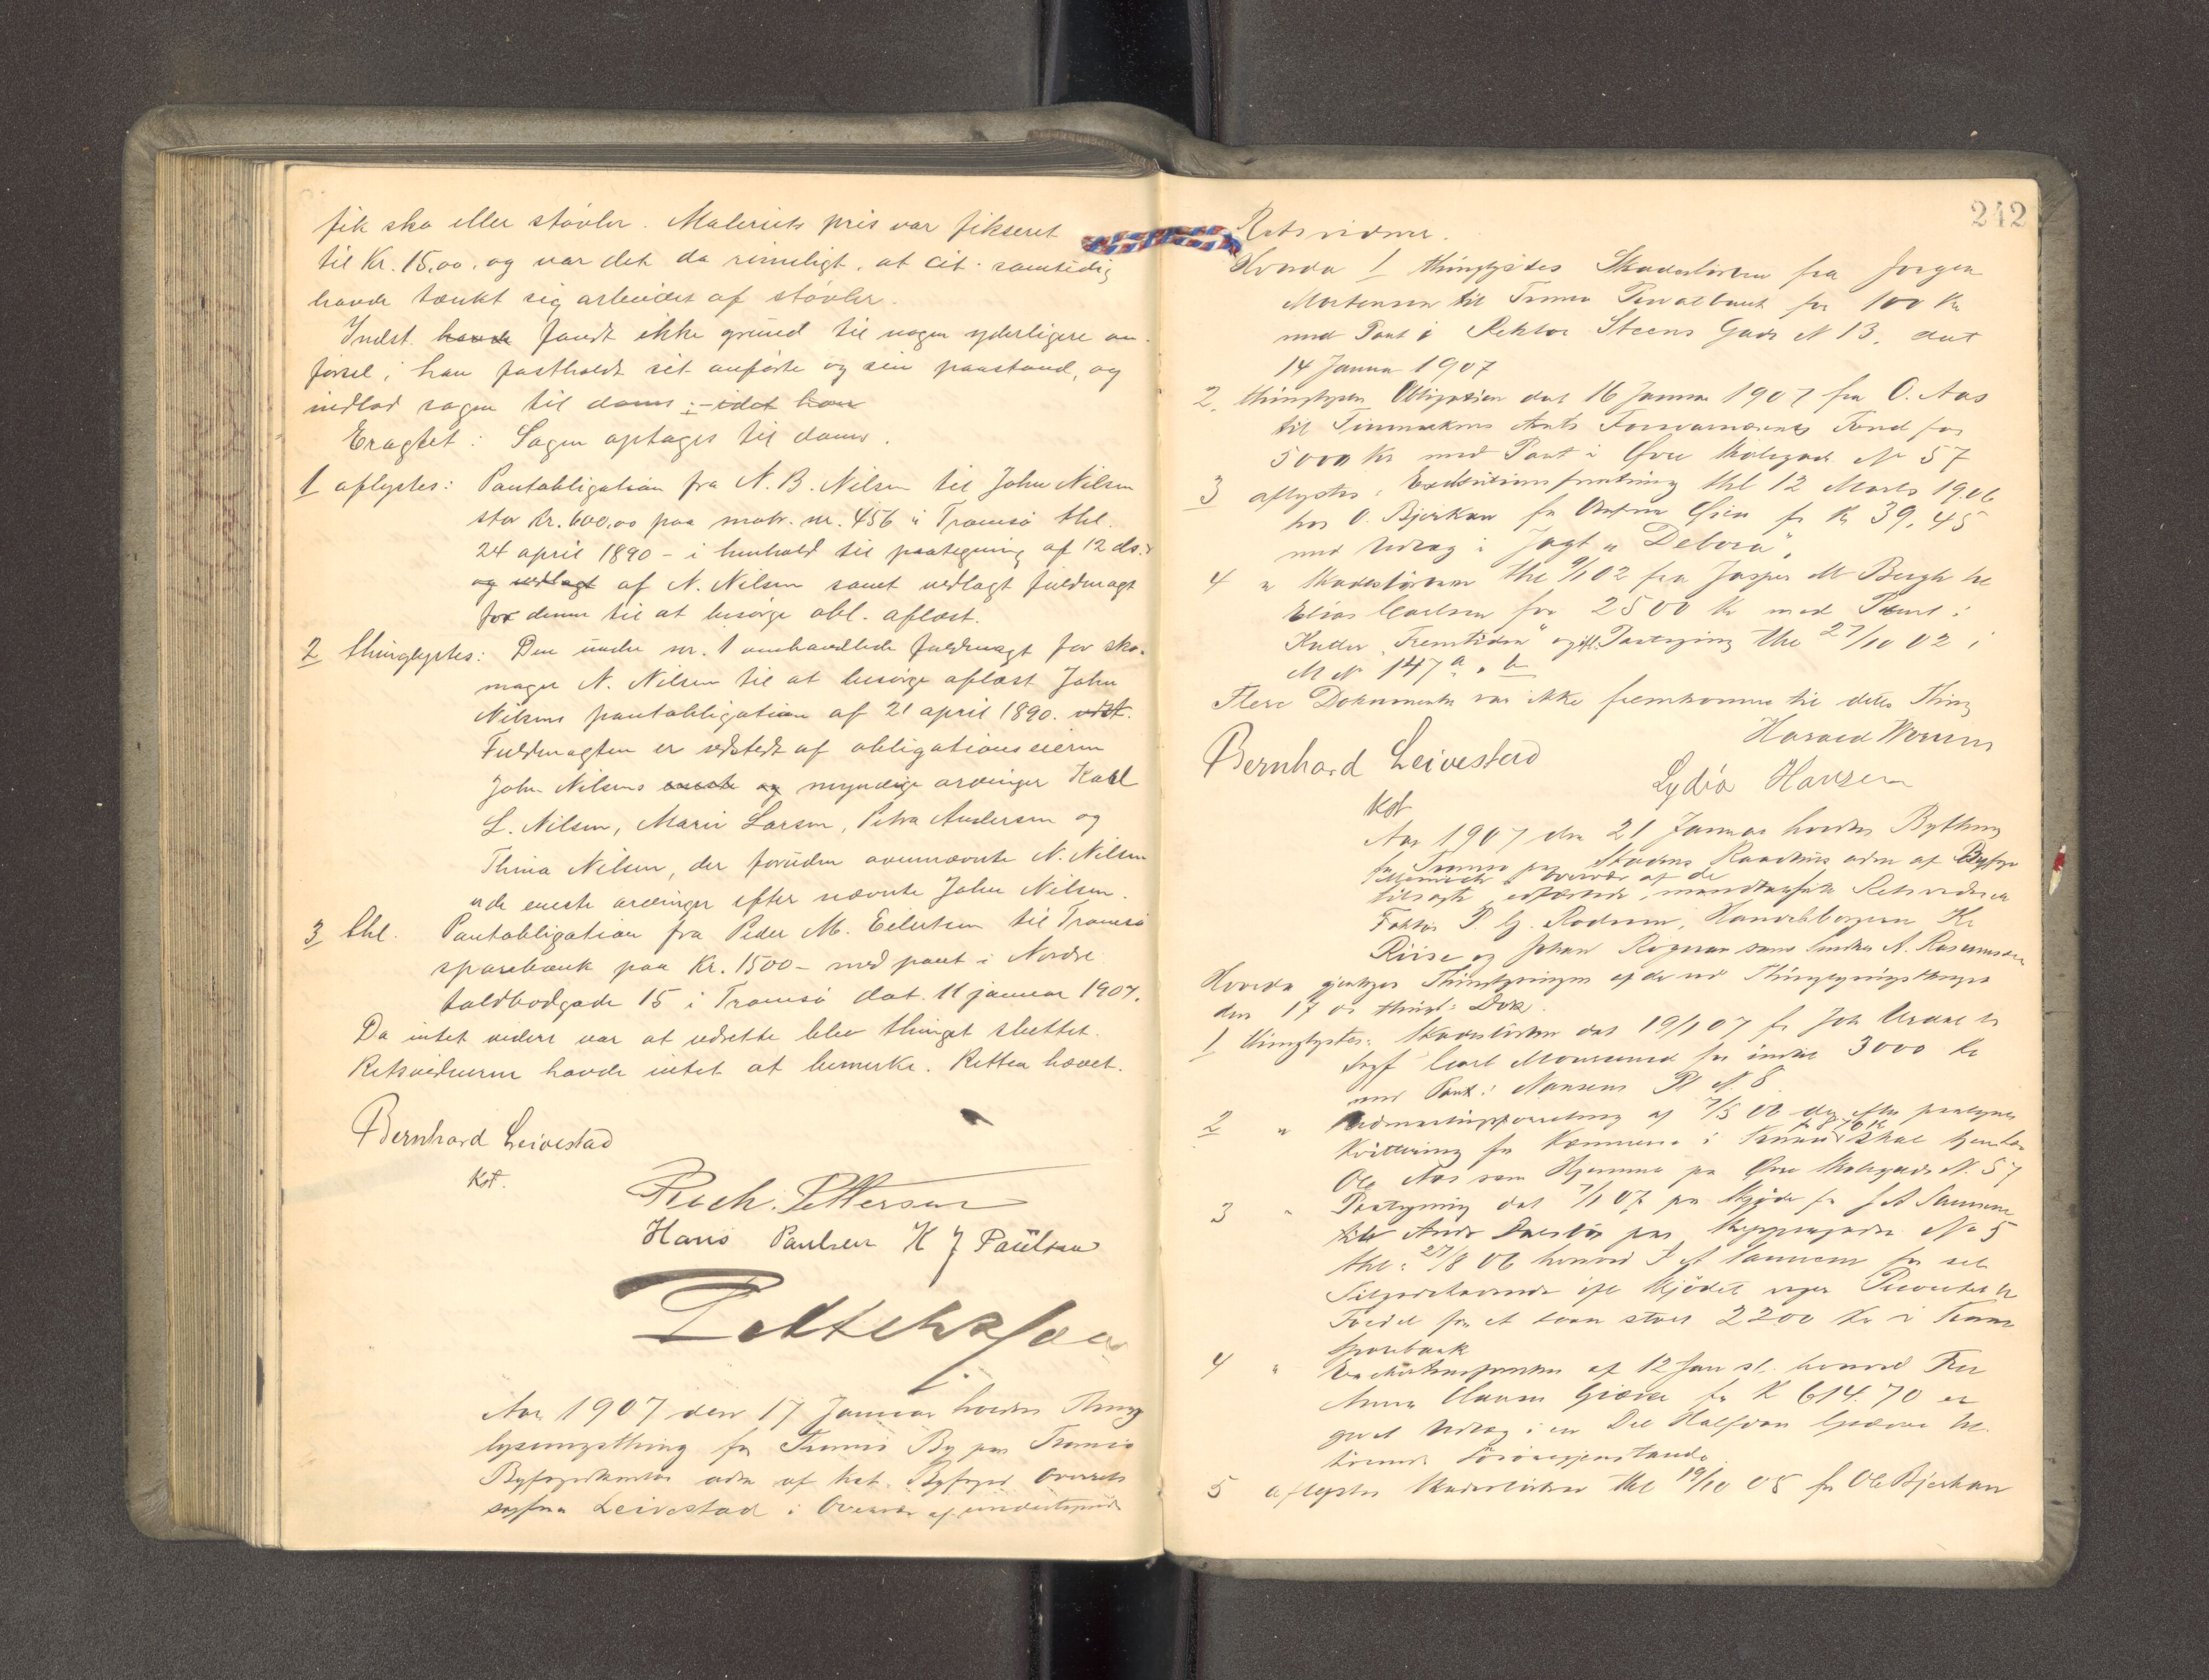 fik sko eller støvler. Maleriets pris var fikseret
til Kr. 15,00, og var det da rimeligt, at cit. samtidig
havde tænkt sig arbeidet af støvler.
Indst. havde fandt ikke grund til nogen yderligere an-
førsel; han fastholdt sit anførte og sin paastand, og
indlod sagen til doms ; - idet han
Eragtet: Sagen optages til doms.
1 aflystes: Pantobligation fra N. B. Nilsen til John Nilsen
stor kr. 600,00 paa matr. nr. 456 i Tromsø thl.
24 april 1890 - i henhold til paategning af 12 ds.
og vedlagt af N. Nilsen samt vedlagt fuldmagt
for denne til at besørge obl. aflæst.
2 thinglystes: Den under nr. 1 omhandlede fuldmagt for sko-
mager N. Nilsen til at besørge aflæst John
Nilsens pantobligation af 21 april 1890. udst.
Fuldmagten er udstedt af obligationseieren
John Nilsens eneste og myndige arvinger Karl
L. Nilsen, Marie Larsen, Petra Andersen og
Thina Nilsen, der foruden ovennævnte N. Nilsen
er de eneste arvinger efter nævnte John Nilsen.
3 thl. Pantobligation fra Peder M. Eilertsen til Tromsø
sparebank paa Kr. 1500 - med pant i Nordre
toldbodgade 15 i Tromsø dat. 11 januar 1907.
Da intet videre var at udrette blev thinget sluttet.
Retsvidnerne havde intet at bemerke. Retten hævet.
Bernhard Leivestad
Kst.
Pettersen
Hans Paulsen K J Paulsen
Aar 1907 den 17 Januar holdtes Thing
lysningsthing for Tromsø By paa Tromsø
Byfogedkontor adm af kst. Byfoged Overrets
sagfører Leivestad i Overvær af undertegnede
242
Retsvidner.
Hvorda 1 thinglystes Skadesløsbrev fra Jørgen
Mortensen til Tromsø Privatbank for 100 Kr
med Pant i Rektor Steens Gade N 13. dat
14 Januar 1907
2. thinglystes Obligation dat 16 Januar 1907 fra O. Aas
til Finmarkens Amts Fond for
5000 Kr med Pant i Øvre Skolegade No 57
3 aflystes: Exekutionsforretning thl 12 Marts 1906
hos O. Bjerkan for Øien for Kr 39,45
med Udlæg i Jagt "Debora".
4 " Skadesløsbrev thl 9/1 02 fra Jasper M Bergh til
Elias Carlsen for 2500 Kr med Pant i
Kutter "Fremtiden" og ifl. Paategning thl 27/10 02 i
M No 147 a. b
Flere Dokumenter var ikke fremkomne til dette Thing
Bernhard Leivestad
Kst
Harald
Lydia Hansen
Aar 1907 den 21 Januar holdtes Bything
for Tromsø paa Stadens Raadhus adm af Byfoged
i overvær af de
tilsagte, edfæstede, mandtalførte Retsvidner
Faktor P. G. Rodum, Handelsborgerne K.
Riise og Johan samt A. Rasmussen
Hvorda gjentages Thinglysningen af de ved Thinglysningsthinget
den 17 ds thingl: Dok.
1 thinglystes: Skadesløsbrev dat 19/1 07 fr Joh til
Sagf Carl for indtil 3000 Kr
med Pant i Nansens Pl N. 8
2 " af 7/5 06 efter paategnet
Kvittering fra Kæmneren i Tromsø skal tjene
Ole Aas som Hjemmel paa Øvre Skolegade N. 57
3 " Paategning dat 7/1 07 paa Skjøde fra
til Andr paa Skippergaden No 5
thl. 27/8 06 hvorved
ifl Skjødet viger Prioritet til
Fordel for et Laan stort 2200 Kr i Tromsø
Sparebank
4 " af 12 Jan sl. hvorved Fru
Anna Hansen Giæver for K 614.70 er
givet Udlæg i en Del Halfdan Giæver til-
hørende Løsøregjenstande.
5 aflystes Skadesløsbrev thl 19/10 05 fr Ole Bjerkan